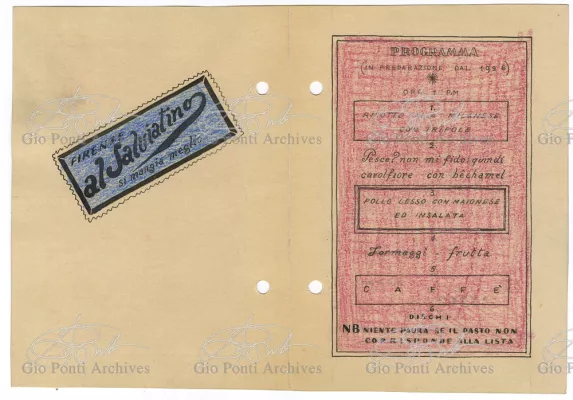 FIRENZE
al Salviatino
si mangia meglio
PROGRAMMA
(IN PREPARAZIONE DAL 1936)
ORE 1 PM
1.
RISOTTO MILANESE
CON TRIFOLE
2
Pesce? non mi fido, quindi
cavolfiore con béchamel
3
POLLO LESSO CON MAIONESE
ED INSALATA
4
Formaggi - frutta
5.
CAFFÈ
6
DISCHI
NB NIENTE PAURA SE IL PASTO NON
CORRISPONDE ALLA LISTA
Gio Ponti Archives
Gio Ponti Archives
Gio Ponti Archives
Gio Ponti Archives
Gio Ponti Archives
Gio Ponti Archives